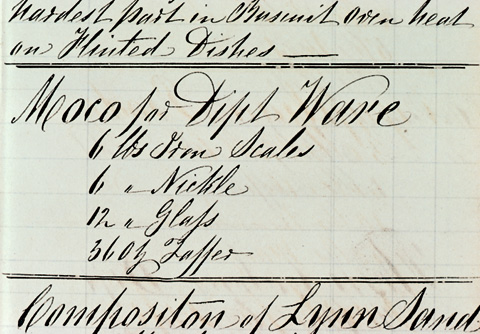 hardest part in Buscuit oven heat
on Flinted Dishes —
Moco for Dipt Ware
6 lbs Iron Scales
6 " Nickle
12 " Glaſs
36 Oz Zaffer
Compositon of Lynn Sand